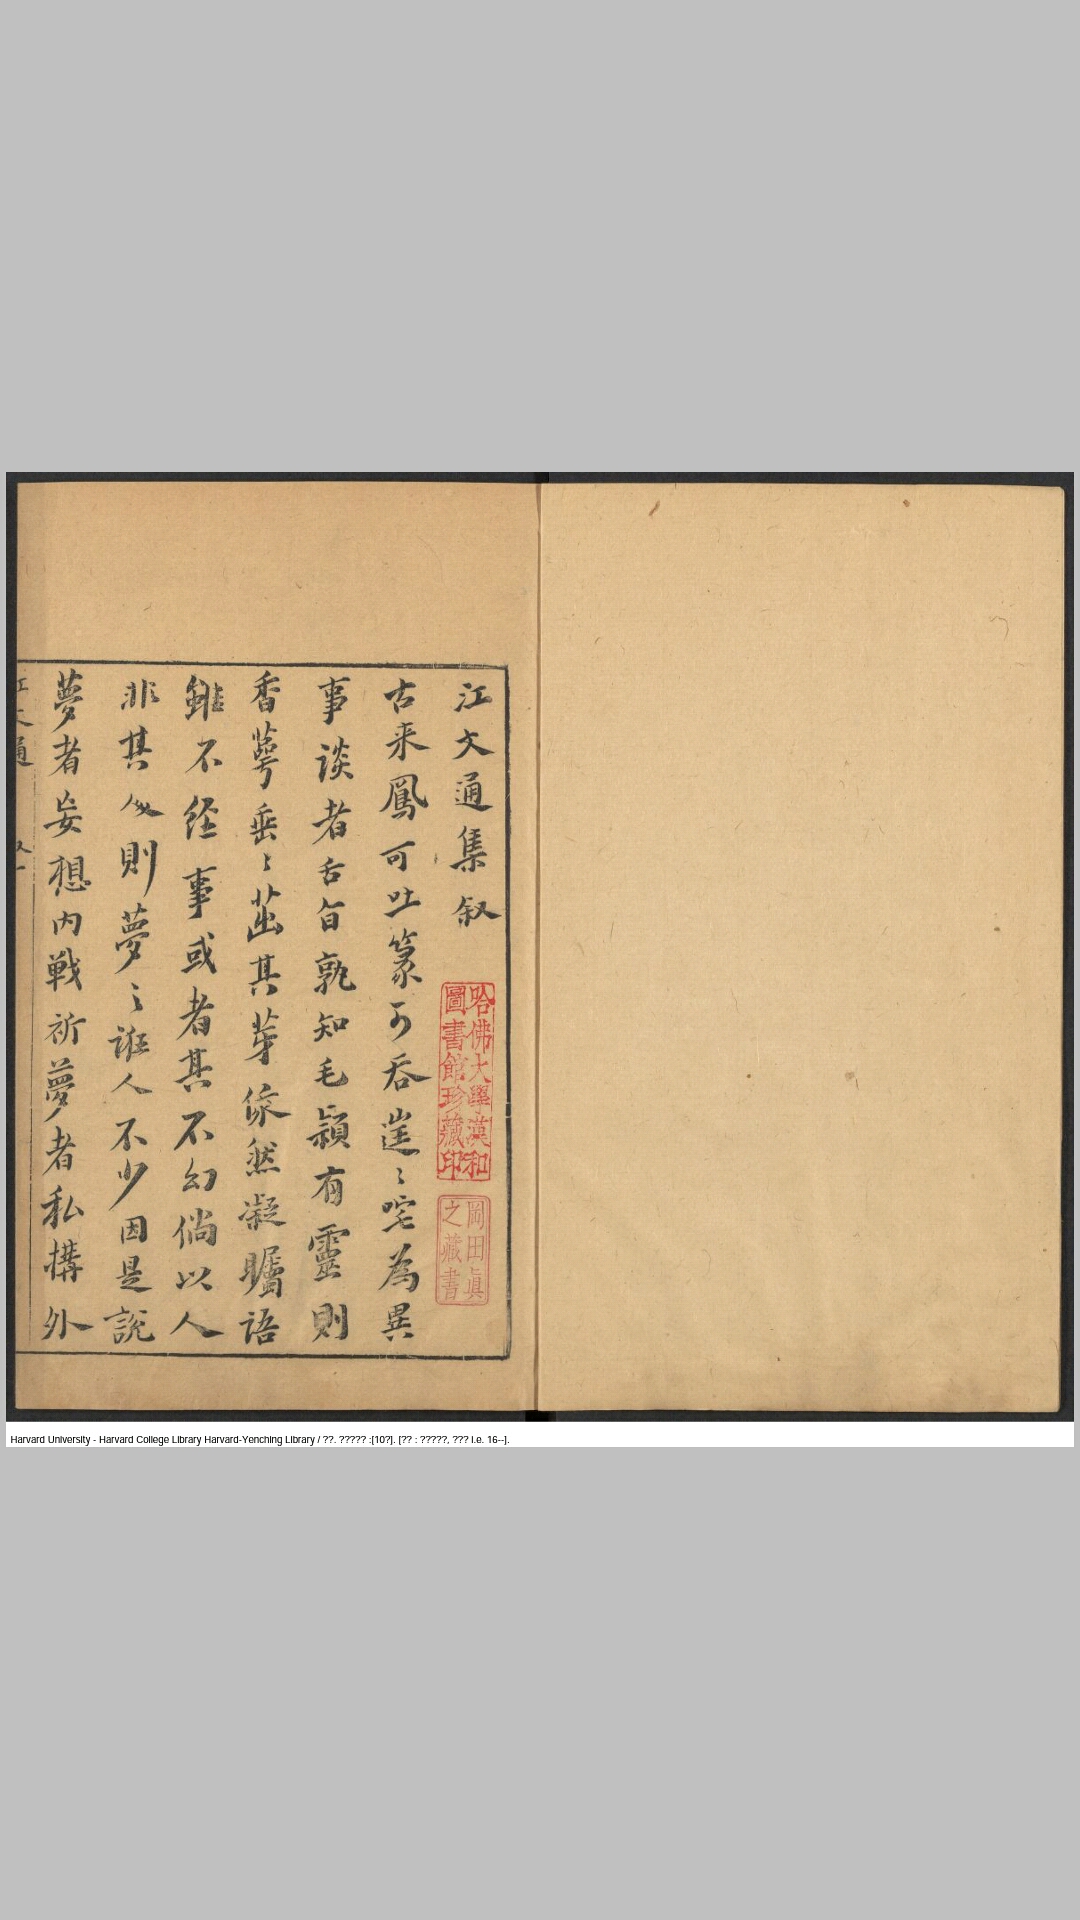 江文通集叙
古来鳳可吐篆可吞嵳〻咤為異
事谈者舌旨孰知毛穎有靈則
香萼垂〻茁其芽條然凝矚语
雖不經事或者其不幻倘以人
非其人則夢〻誑人不少因是說
夢者妄想内戰祈夢者私搆外
江文通
哈佛大學漢和
圖書館珍藏印
岡田眞
之藏書
Harvard University - Harvard College Library Harvard-Yenching Library / ??. ????? :[10?]. [?? : ?????, ??? i.e. 16--].